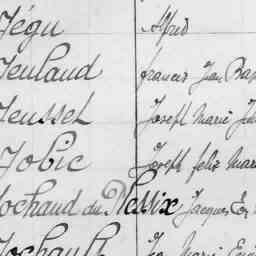 Jégu Alfred
Jeuland francis Jean Bap
Jeusset Joseph Marie Ju
Jobic Joseph felix Mari
Jochaud du Plessix Jacques
Jochault Marie